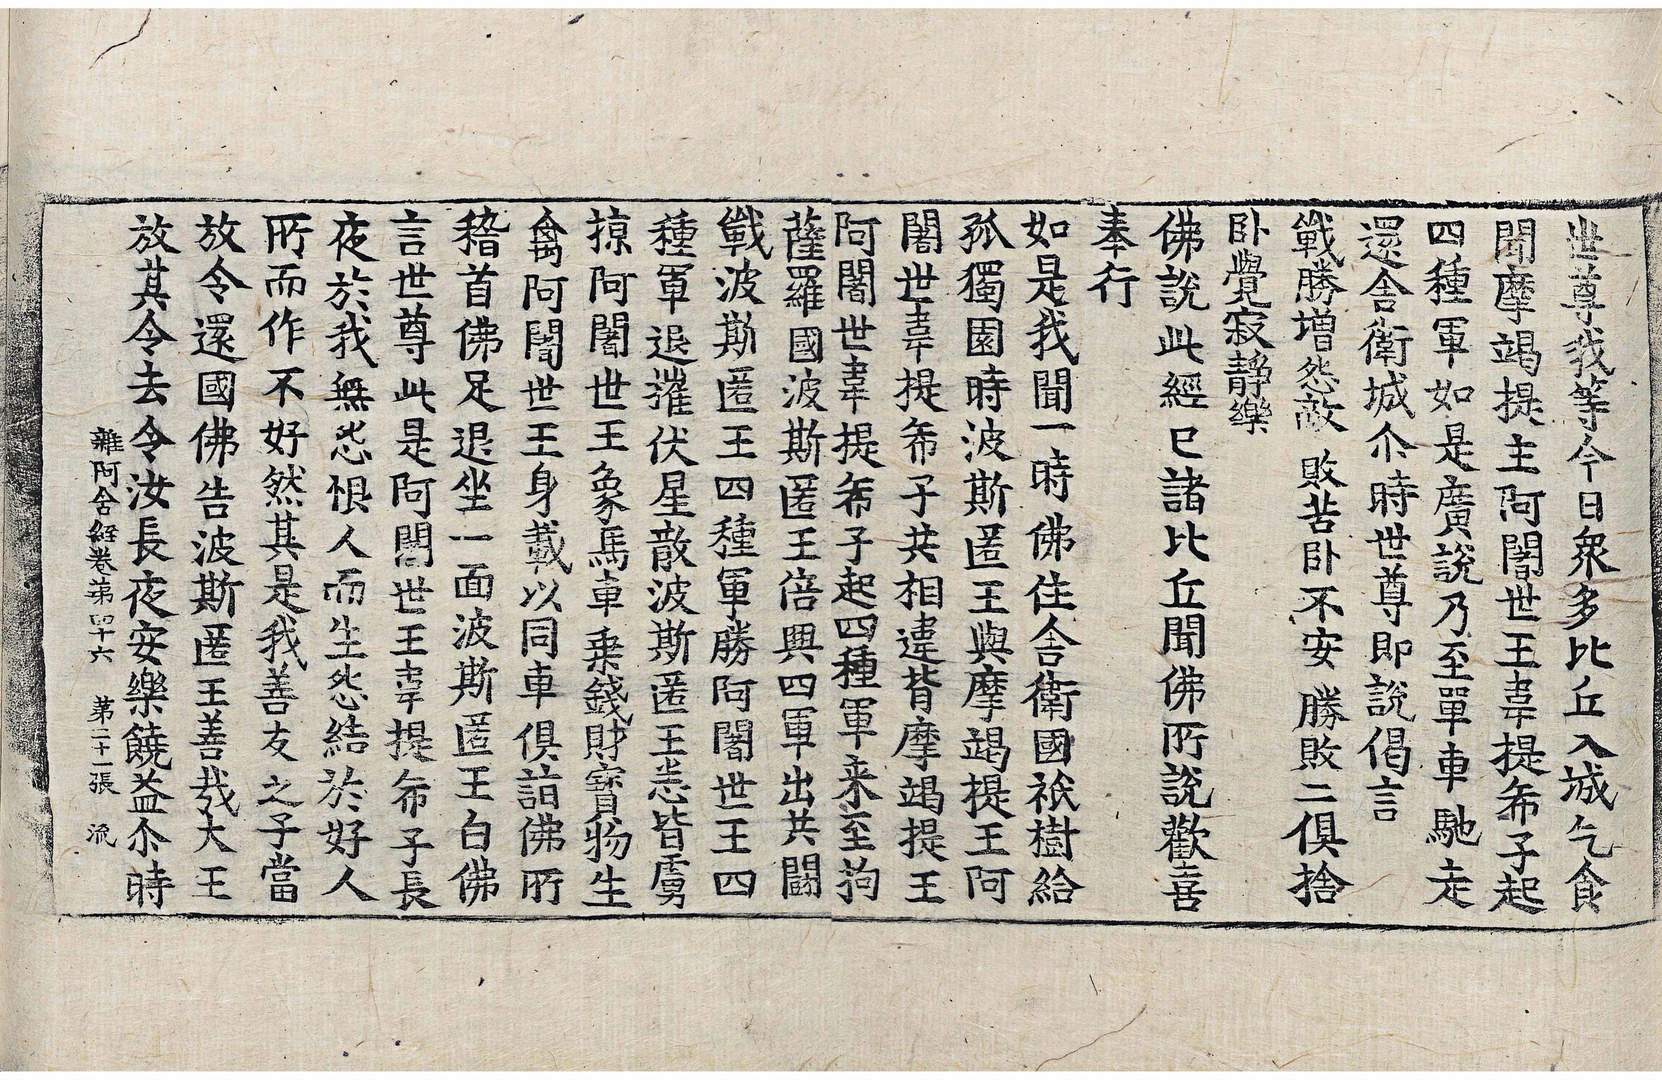 世尊我等今日衆多比丘入城乞食
聞摩竭提主阿闍世王韋提希子起
四種軍如是廣說乃至單車馳走
還舍衛城尒時世尊即說偈言
戰勝增怨敵 敗苦卧不安 勝敗二俱捨
卧覺寂靜樂
佛說此經已諸比丘聞佛所說歡喜
奉行
如是我聞一時佛住舍衛國祇樹給
孤獨園時波斯匿王與摩竭提王阿
闍世韋提希子共相違背摩竭提王
阿闍世韋提希子起四種軍来至拘
薩羅國波斯匿王倍興四軍出共鬪
戰波斯匿王四種軍勝阿闍世王四
種軍退摧伏星散波斯匿王悉皆虜
掠阿闍世王象馬車乗錢財寶物生
禽阿闍世王身載以同車俱詣佛所
稽首佛足退坐一面波斯匿王白佛
言世尊此是阿闍世王韋提希子長
夜於我無怨恨人而生怨結於好人
所而作不好然其是我善友之子當
放令還國佛告波斯匿王善哉大王
放其令去令汝長夜安樂饒益尒時
雜阿含經卷第四十六 第二十一張 流